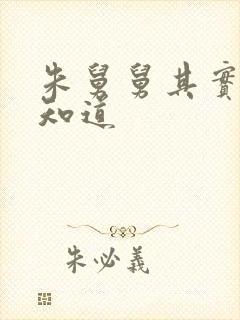 朱舅舅其實
知道
朱必義